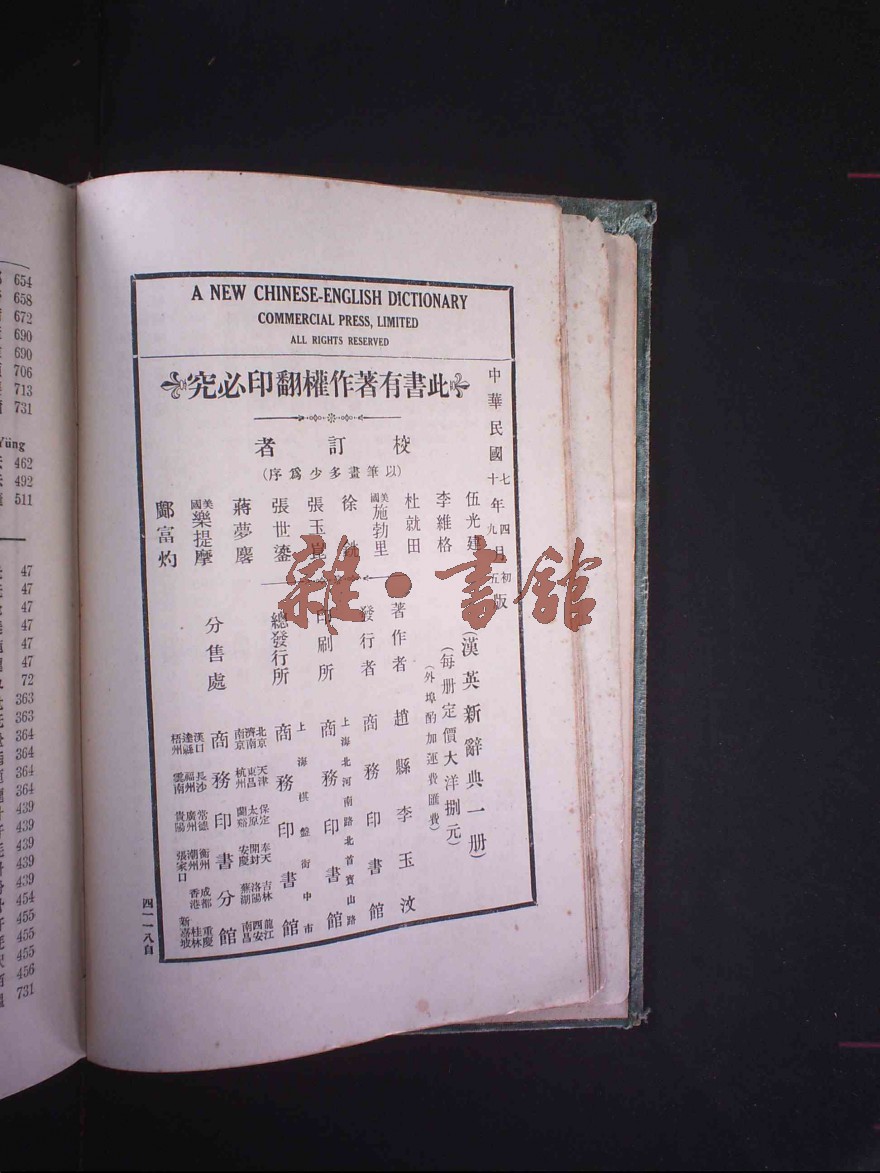 A NEW CHINESE-ENGLISH DICTIONARY
COMMERCIAL PRESS, LIMITED
ALL RIGHTS RESERVED
此書有著作權翻印必究
中華民國十七年九四月五初版
校訂者
(以筆畫多少爲序)
伍光建
李維格
杜就田
美國施勃里
徐銑
張玉崑
張世鎏
蔣夢麐
美國樂提摩
鄺富灼
(漢英新辭典一册)
(每册定價大洋捌元)
(外埠酌加運費匯費)
著作者 趙縣李玉汶
發行者 商務印書館
上海北河南路北首寶山路
印刷所 商務印書館
上海棋盤街中市
總發行所 商務印書館
北京 天津 保定 奉天 吉林 龍江
濟南 東昌 太原 開封 洛陽 西安
南京 杭州 蘭谿 安慶 蕪湖 南昌
分售處 商務印書分館
漢口 長沙 常德 衡州 成都 重慶
達縣 福州 廣州 潮州 香港 桂林
梧州 雲南 貴陽 張家口 新嘉坡
四一一八自
雜·書館
654
658
672
690
690
706
713
731
Yüng
462
492
511
47
47
47
47
47
72
363
363
364
364
364
364
439
439
439
439
439
454
455
455
455
456
731